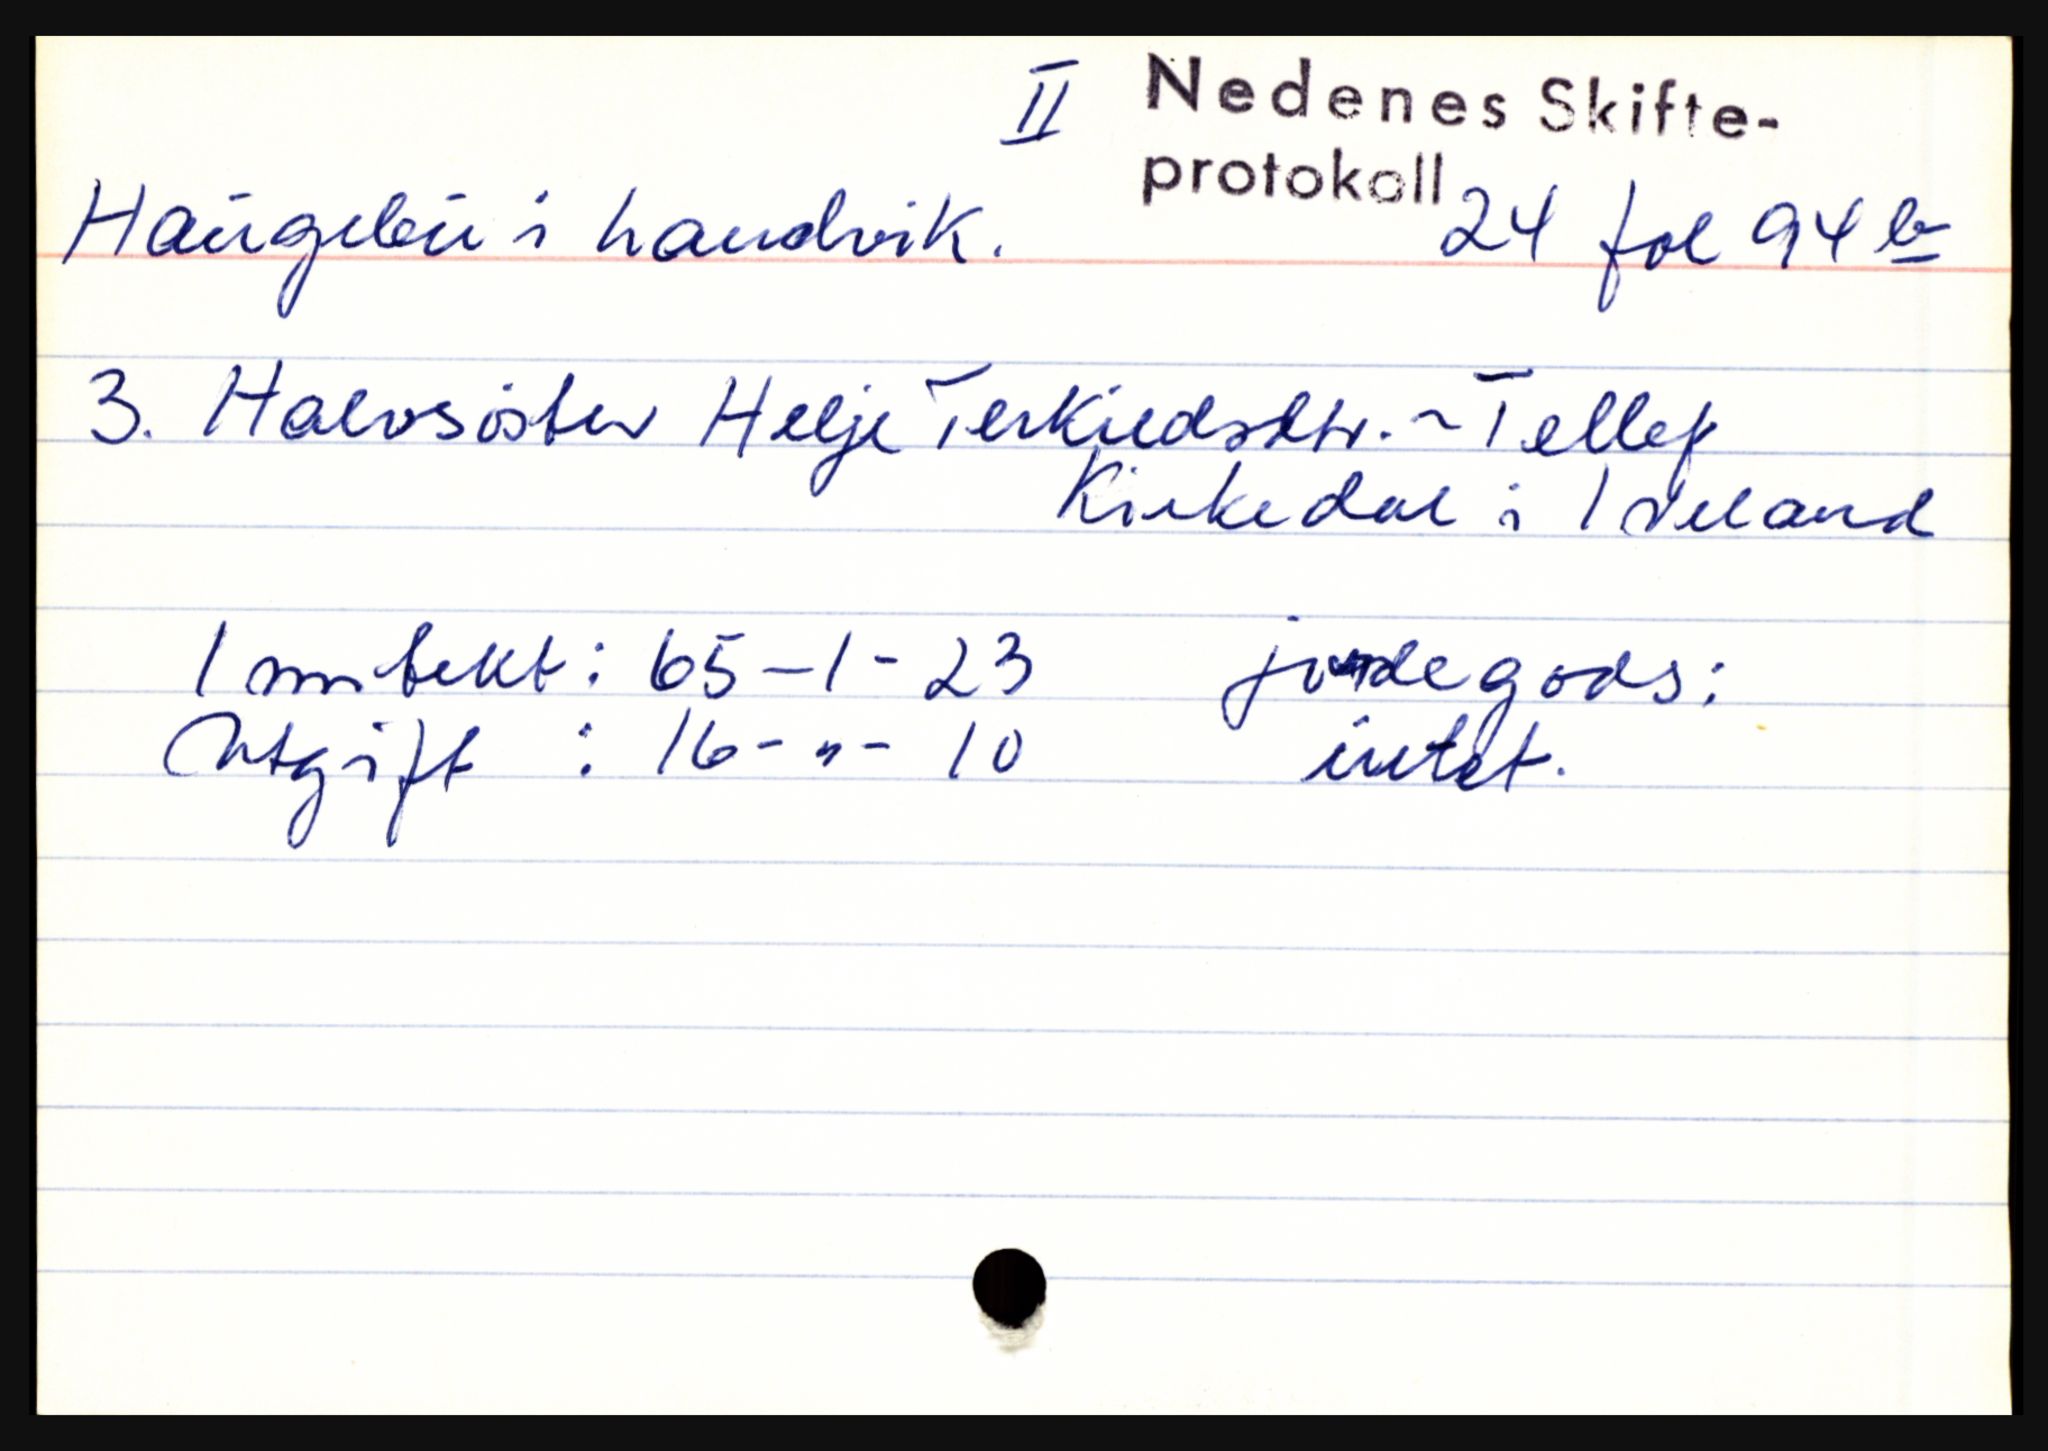 II Nedenes Skifte-
protokoll
Haugebu i Landvik. 24 fol 94 b
3. Halvsöster Helje Terkieldsdtr. ~ Tellef
Kirkedal i Iveland
Inntekt: 65-1-23 jordegods:
Utgift : 16-"-10 intet.